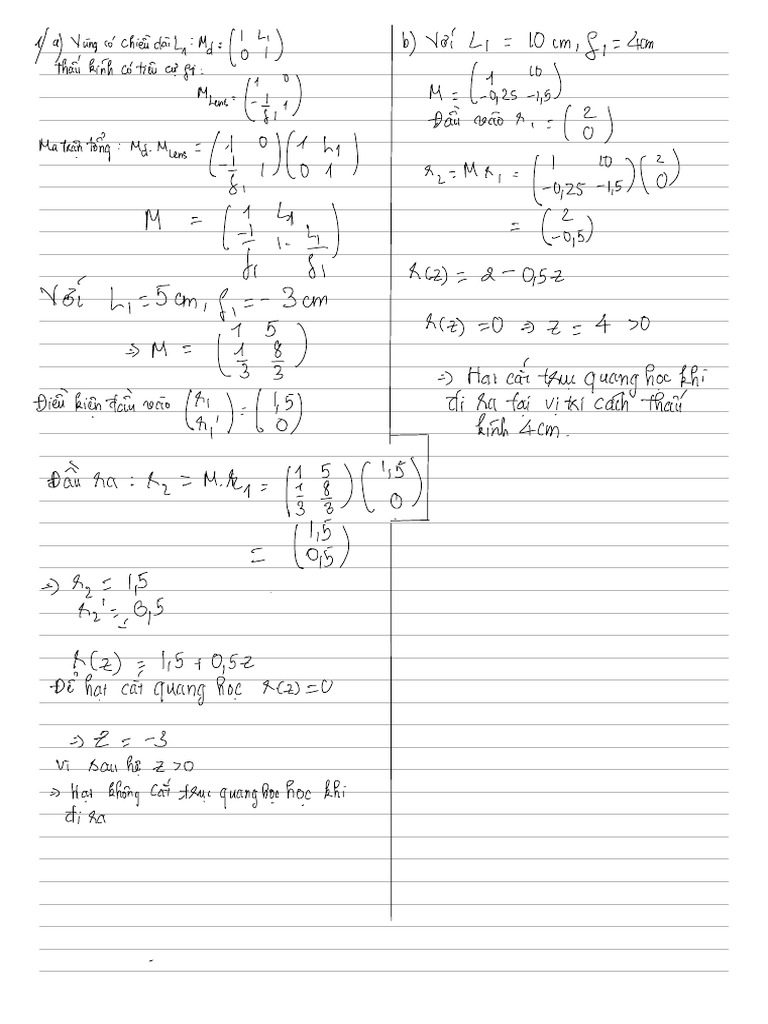 1/ a) Vùng có chiều dài L₁ : M_d = (1 L₁ ; 0 1)
thấu kính có tiêu cự f₁ :
M_Lens = (1 0 ; -1/f₁ 1)
Ma trận tổng : M_d . M_Lens = (1 0 ; -1/f₁ 1)(1 L₁ ; 0 1)
M = (1 L₁ ; -1/f₁ 1 - L₁/f₁)
Với L₁ = 5 cm, f₁ = - 3 cm
=> M = (1 5 ; 1/3 8/3)
Điều kiện đầu vào (r₁ ; r₁') = (1,5 ; 0)
Đầu ra : r₂ = M.r₁ = (1 5 ; 1/3 8/3)(1,5 ; 0)
= (1,5 ; 0,5)
=> r₂ = 1,5
r₂' = 0,5
r(z) = 1,5 + 0,5z
Để hạt cắt quang học r(z) = 0
=> z = -3
Vì sau hệ z > 0
=> Hạt không cắt trục quang học học khi
đi ra
b) Với L₁ = 10 cm, f₁ = 4cm
M = (1 10 ; -0,25 -1,5)
Đầu vào r₁ = (2 ; 0)
r₂ = M r₁ = (1 10 ; -0,25 -1,5)(2 ; 0)
= (2 ; -0,5)
r(z) = 2 - 0,5z
r(z) = 0 => z = 4 > 0
=> Hạt cắt trục quang học khi
đi ra tại vị trí cách thấu
kính 4cm.